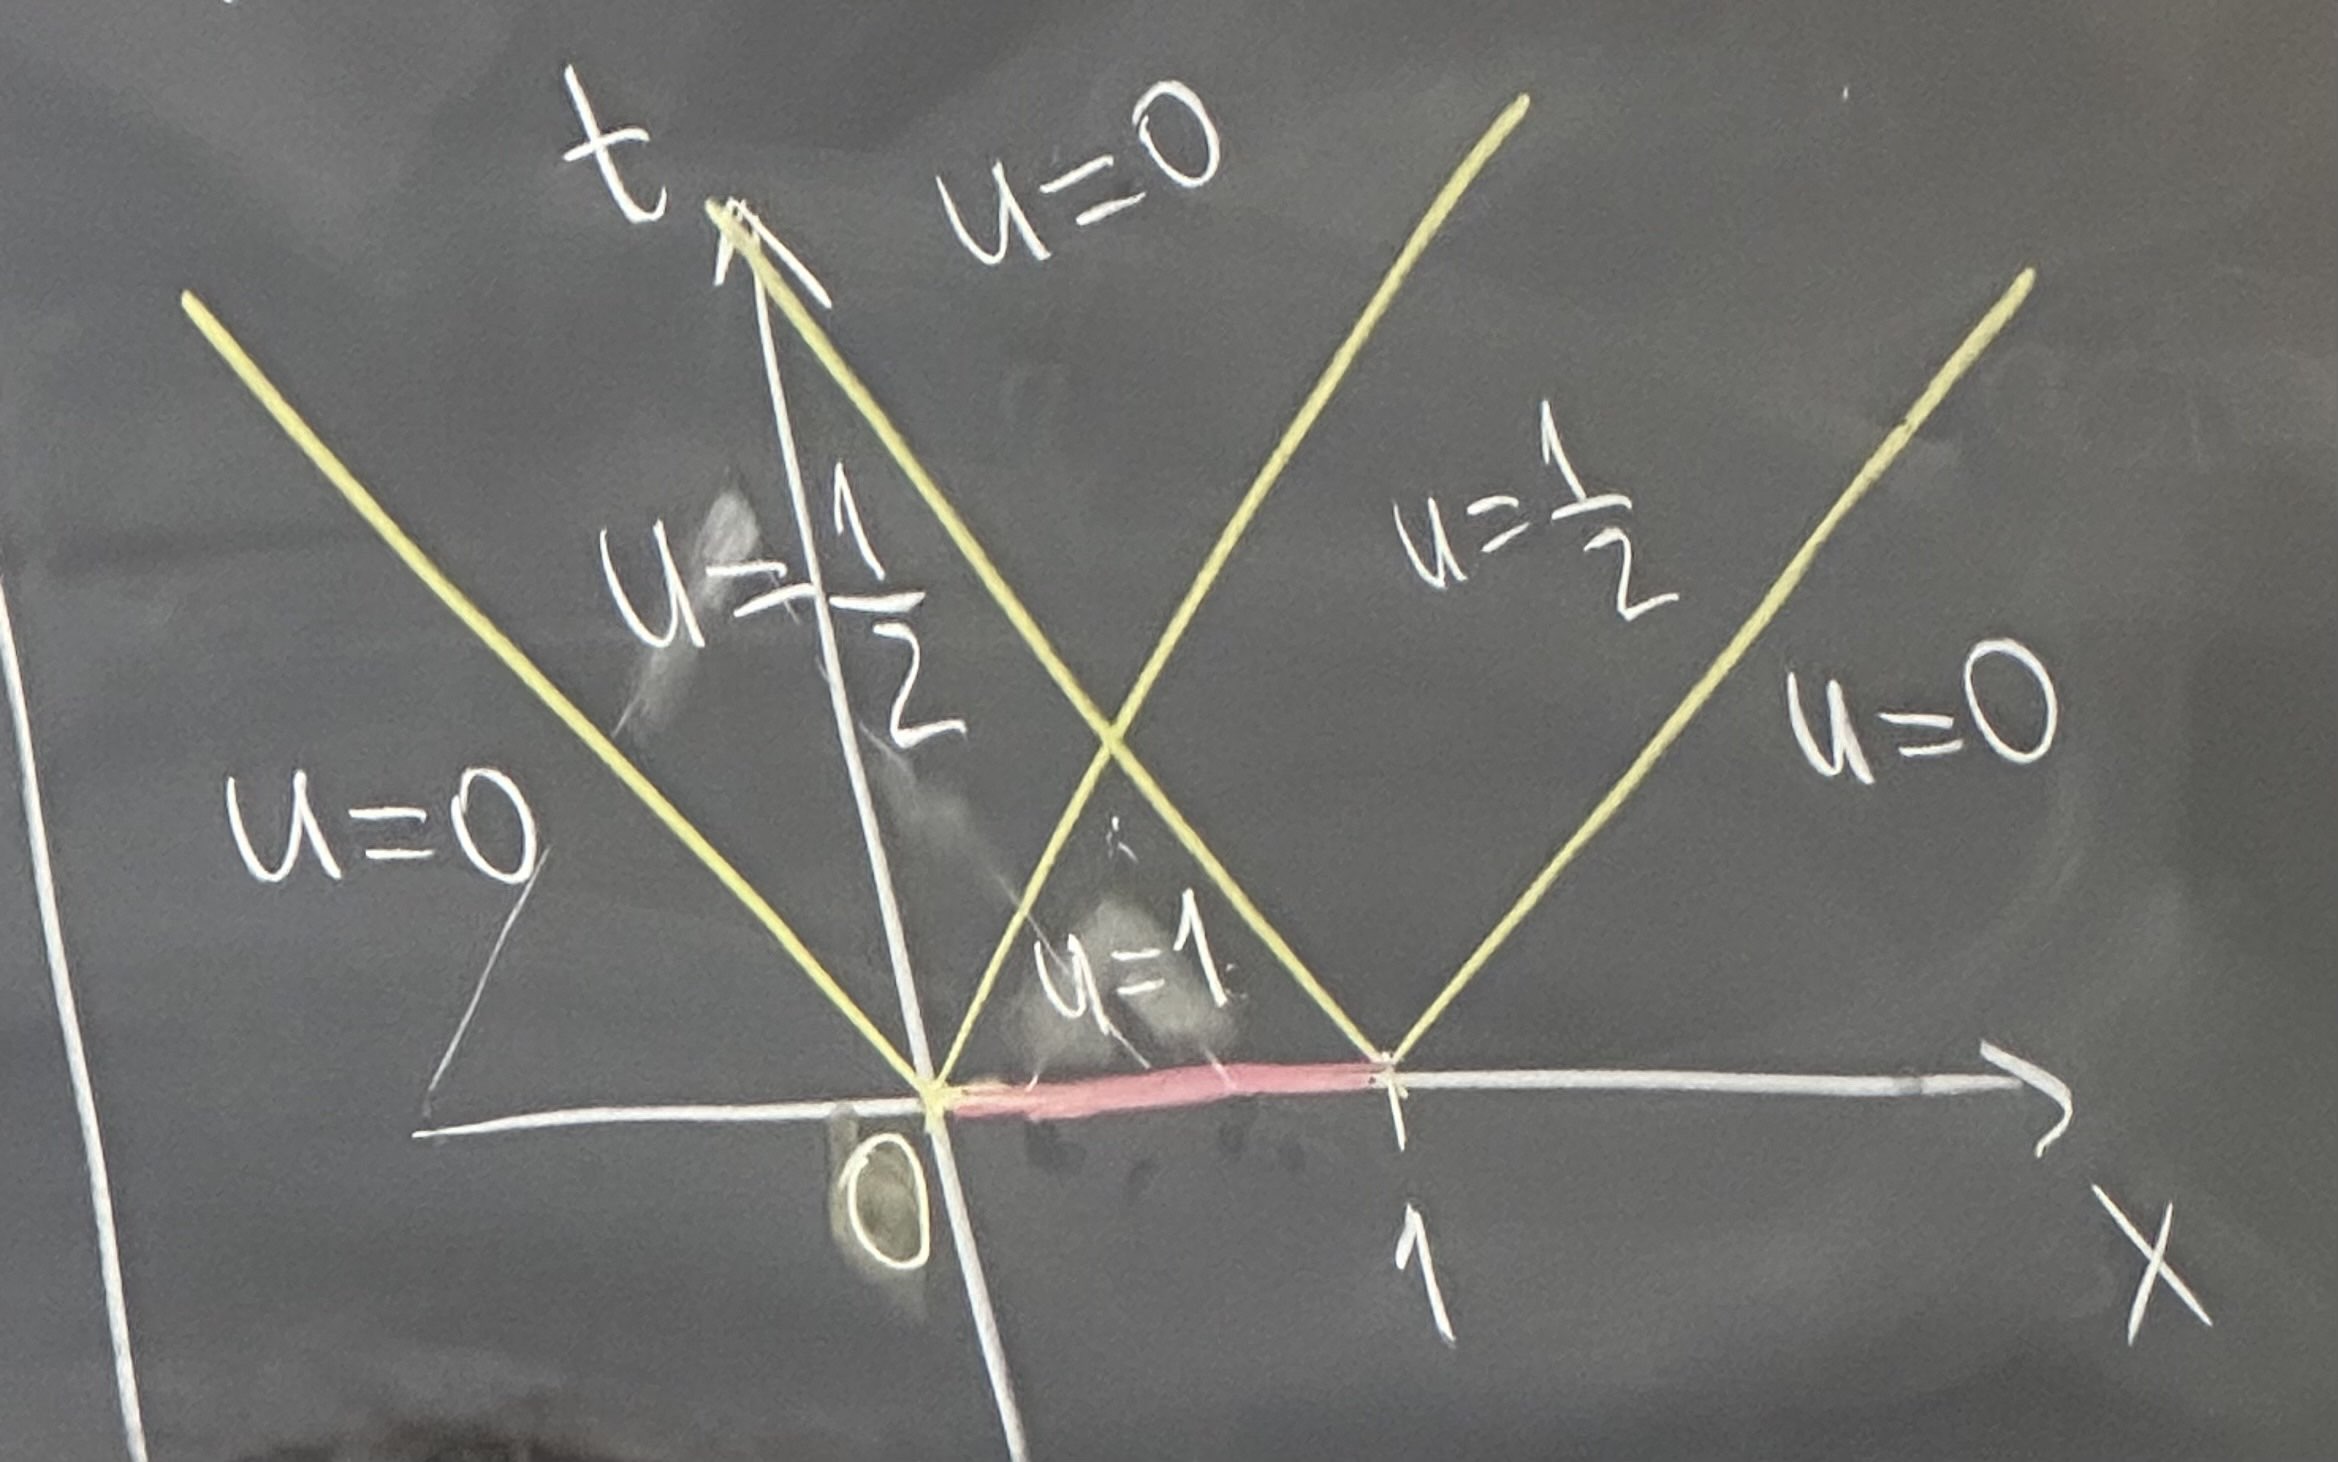 t
u=0
u=1/2
u=1/2
u=0
u=0
u=1
0
1
x